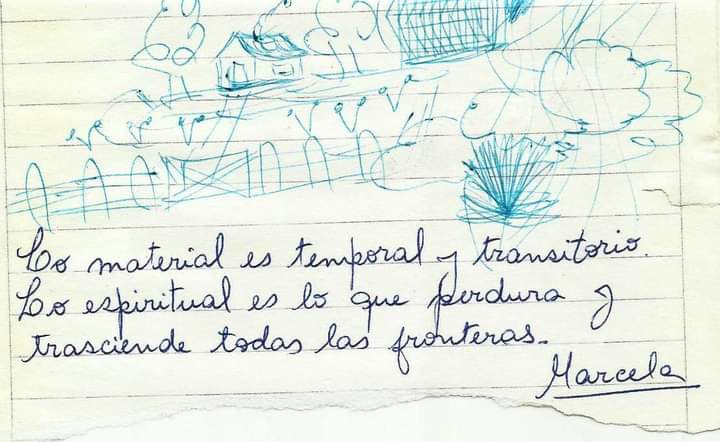 Lo material es temporal y transitorio.
Lo espiritual es lo que perdura y
trasciende todas las fronteras.
Marcela